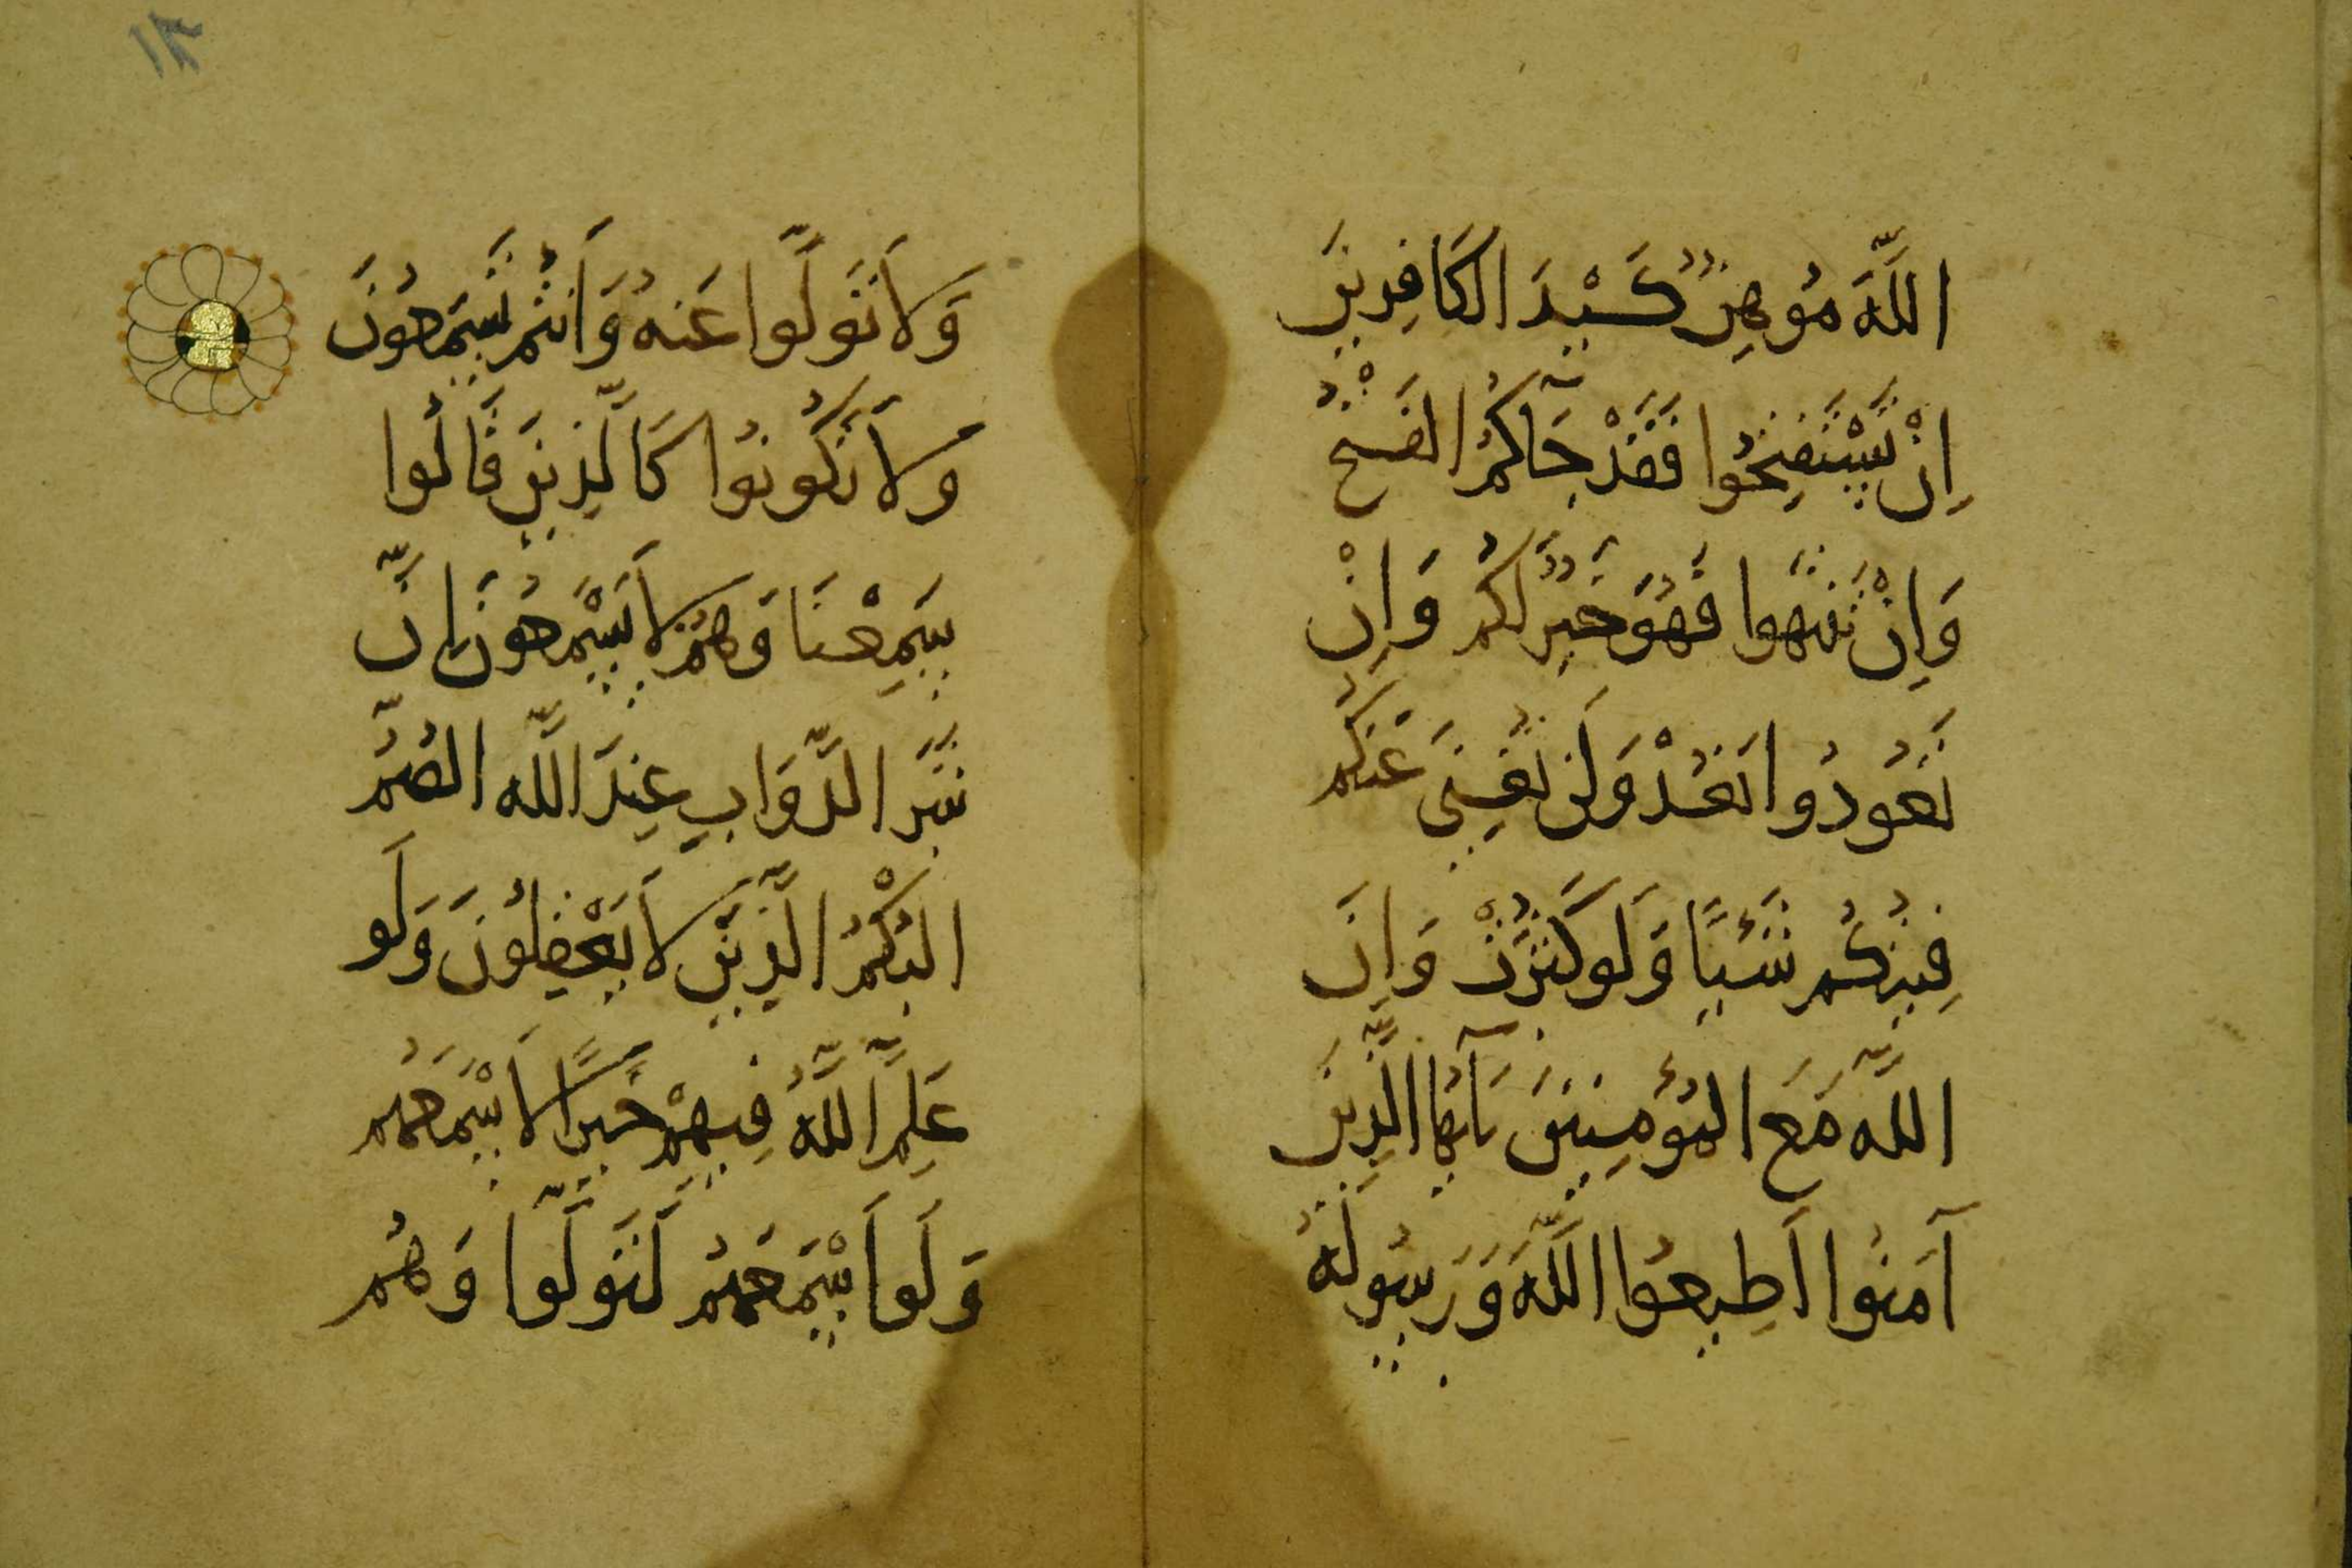 اللَّهَ مُوهِنٌ كَيْدَ الكَافِرِينَ
اِنْ تَسْتَفْتِحُوا فَقَدْ جَآكُمُ الفَتْحُ
وَاِنْ تَنْتَهُوا فَهُوَ خَيْرٌ لَكُم وَاِنْ
تَعُودُوا نَعُدْ وَلَن تُغْنِىَ عَنكُم
فِئَتُكُم شَيْئًا وَلَو كَثُرَتْ وَاِنَ
اللَّه مَعَ المُؤمِنِينَ يَآيُّهَا الَّذِينَ
آمَنُوا اَطِيعُوا اللَّهَ وَرَسُولَهُ
وَلاَ تَوَلَّوا عَنهُ وَاَنتُم تَسمَعُونَ
وَلاَ تَكُونُوا كَالَّذِينَ قَالُوا
سَمِعْنَا وَهُم لاَ يَسْمَعُونَ اِنَّ
شَرَّ الدَّوَابِ عِندَ اللَّه الصُمُّ
البُكْمُ الَّذِينَ لاَ يَعْقِلُونَ وَلَو
عَلِمَ اللَّهُ فِيهِمْ خَيرًا لاَسْمَعَهُم
وَلَو اَسْمَعَهُم لَتَوَلَّوا وَهُم